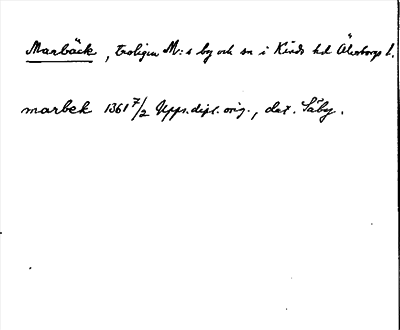 Marbäck, troligen M:s by och sn i Kinds hd Älvsborgs l.
marbek 1361 7/2 Upps. dipl. orig., dat. Säby.